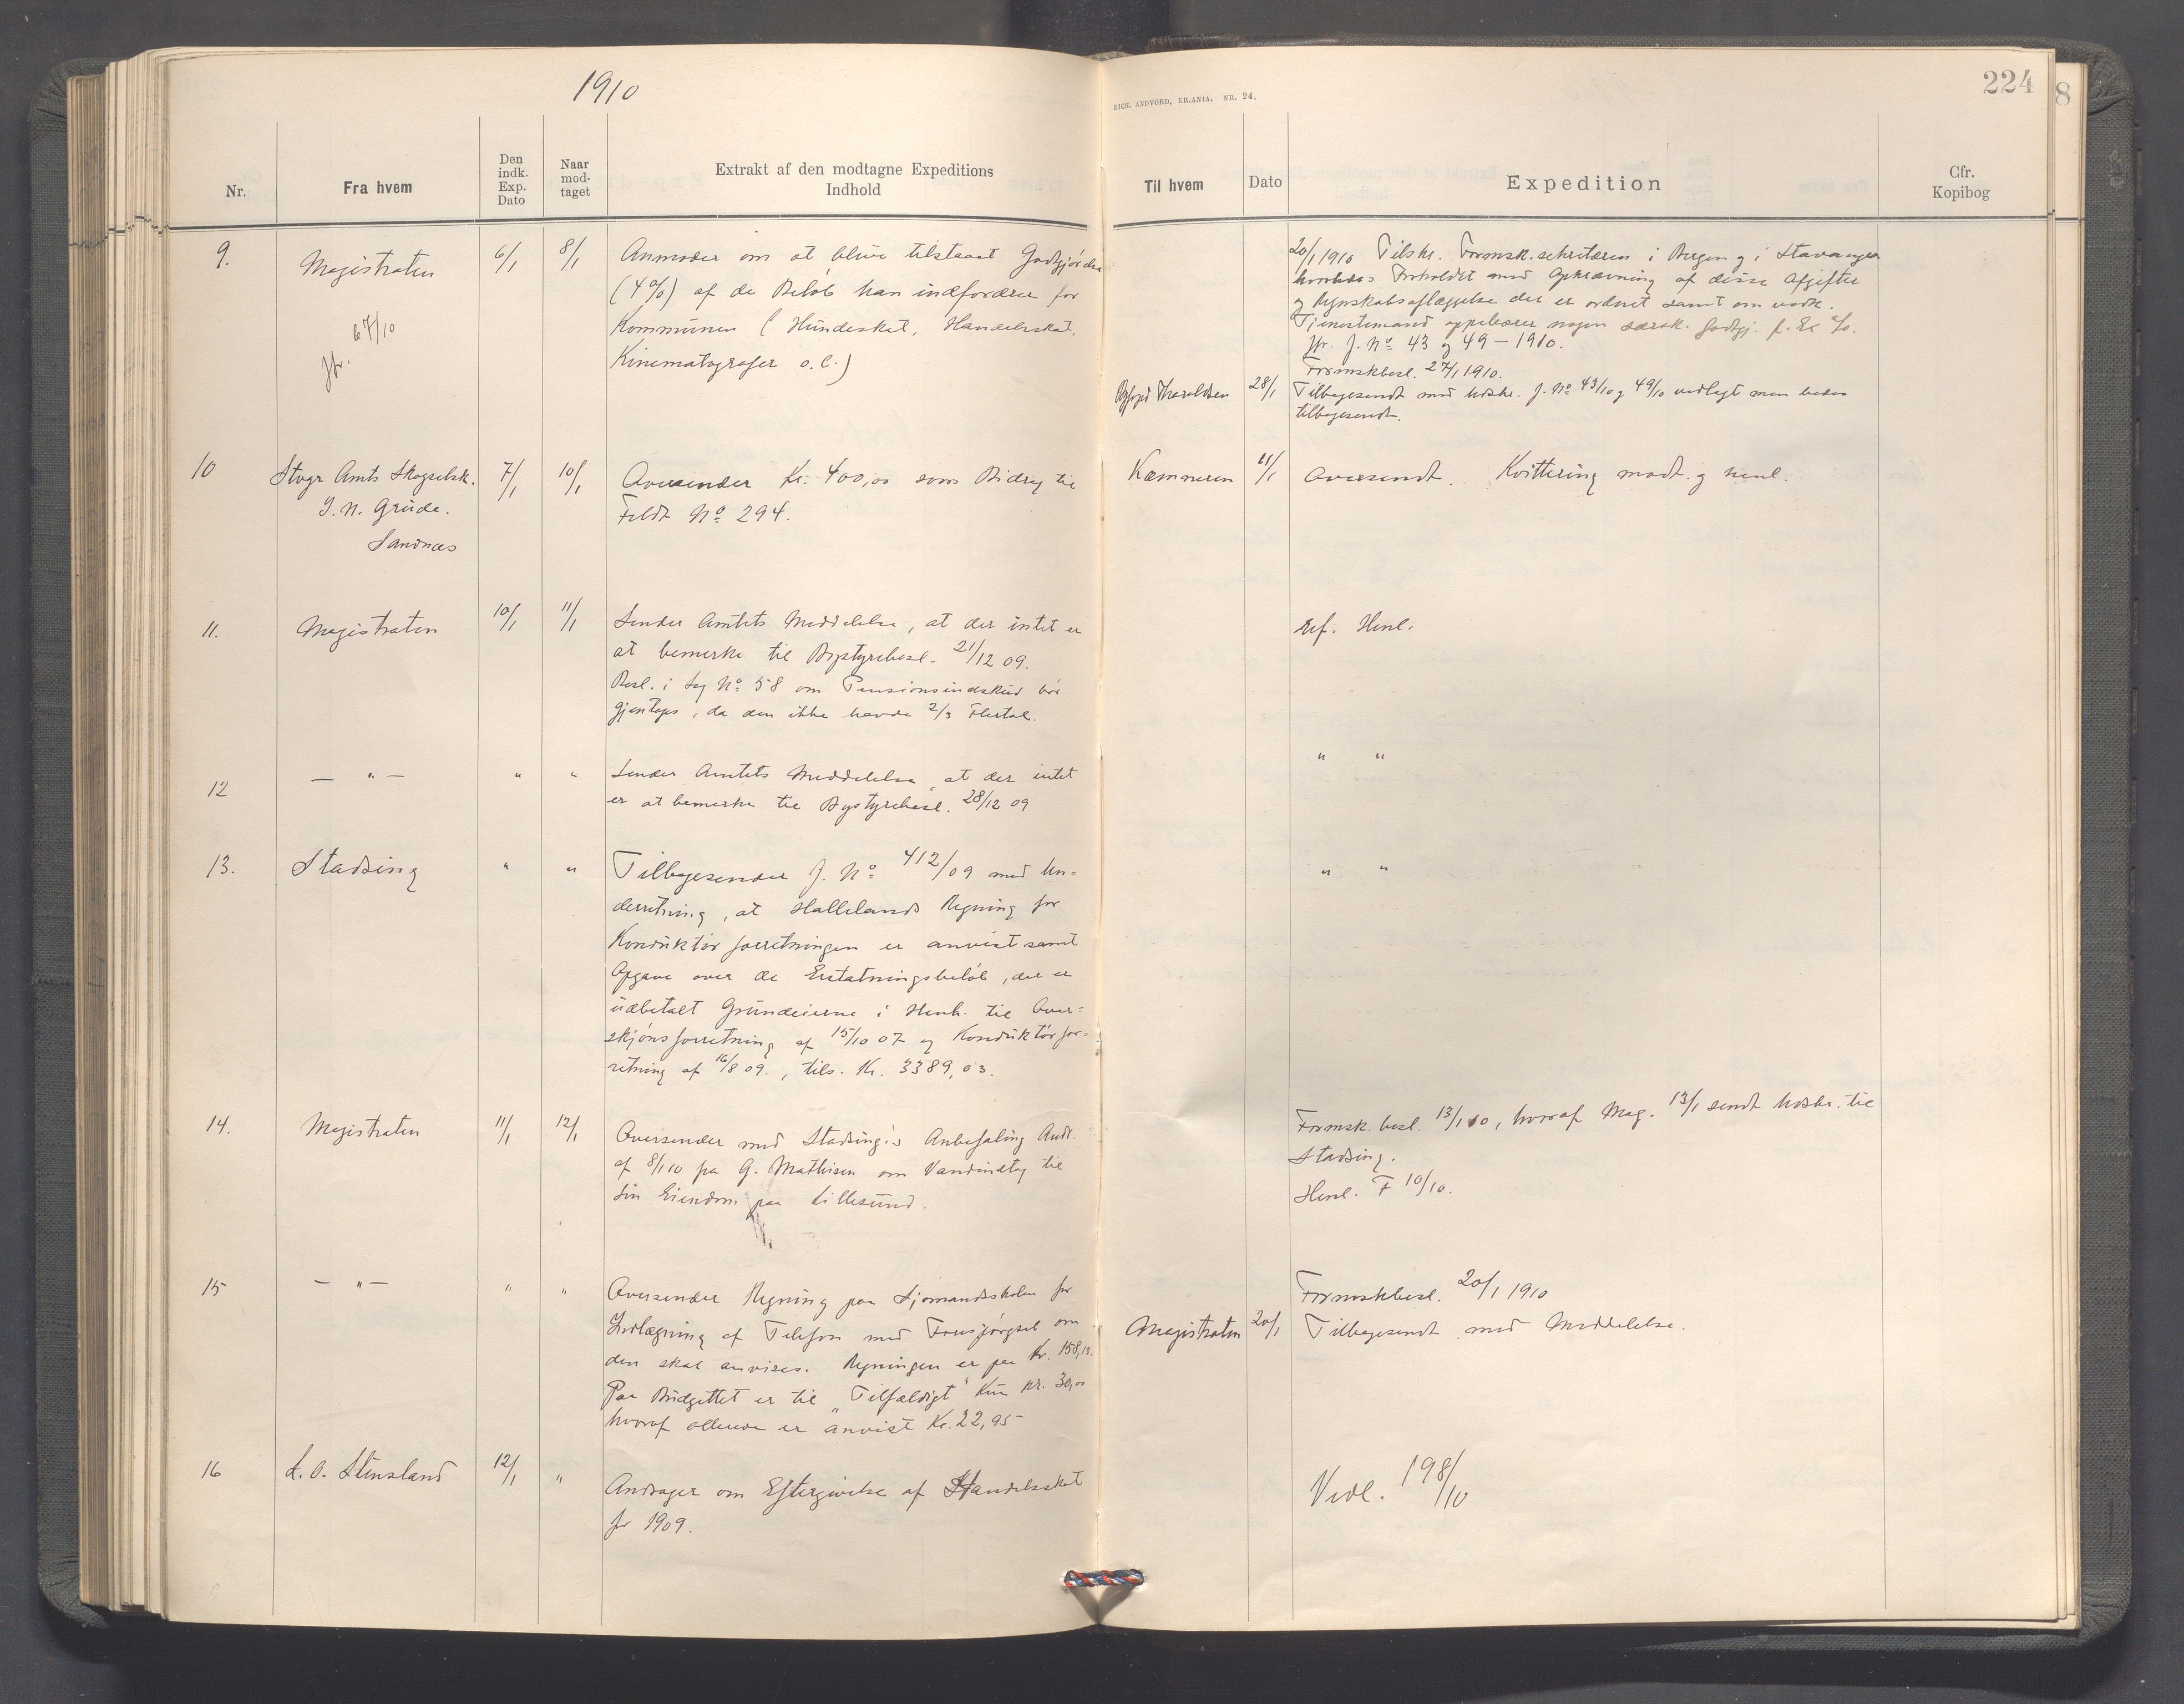 1910
Nr.
Fra hvem
Den
indk.
Exp.
Dato
Naar
mod-
taget
Extrakt af den modtagne Expeditions
Indhold
9.
Magistraten
6/1
8/1
Anmoder om at blive tilstaaet Godtgjørelse
(4%) af de Beløb han indfordrer for
Kommunen (Hundeskat, Handelsskat,
Kinematografer o.l.)
Jfr. 67/10
10
Stvgr Amts Skogselsk.
J. N. Grude.
Sandnæs
7/1
10/1
Oversender Kr. 400,00 som Bidrag til
Feldt No 294.
11.
Magistraten
10/1
11/1
Sender Amtets Meddelelse, at der intet er
at bemerke til Bystyrebesl. 21/12 09.
Besl. i Sag No 58 om Pensionsindskud bør
gjentages, da den ikke havde 2/3 Flertal.
12
— " —
"
"
Sender Amtets Meddelelse, at der intet
er at bemerke til Bystyrebesl. 28/12 09
13.
Stadsing
"
"
Tilbagesender J. No 412/09 med Un=
derretning, at Hallelands Regning for
Konduktørforretningen er anvist samt
Opgave over de Erstatningsbeløb, der er
udbetalt Grundeierne i Henh. til Over=
skjønsforretning af 15/10 07 og Konduktørfor=
retning af 16/8 09., tils. Kr. 3389,03.
14.
Magistraten
11/1
12/1
Oversender med Stadsing's Anbefaling Andr.
af 8/1 10 fra G. Mathisen om Vandindtag til
sin Eiendom paa Lillesund.
15
— " —
"
"
Oversender Regning paa Sjømandsskolen for
Indlægning af Telefon med Forespørgsel om
den skal anvises. Regningen er paa Kr. 158,13.
Paa Budgettet er til „Tilfældigt" kun Kr. 30,00
hvoraf allerede er anvist Kr. 22,95
16
L. O. Stensland
12/1
"
Andrager om Eftergivelse af Handelsskat
for 1909.
RICH. ANDVORD, KR.ANIA. NR. 24.
224
8
Til hvem
Dato
Expedition
Cfr.
Kopibog
20/1 1910 Tilskr. Formsk.sekretæren i Bergen og i Stavanger
hvorledes Forholdet med Opkrævning af disse Afgifter
og Regnskabsaflæggelse der er ordnet samt om vedk.
Tjenestemand oppebærer nogen særsk. Godtgj. f. Ex %.
Jfr. J. No 43 og 49 – 1910.
Formskbesl. 27/1 1910.
Byfogd Haraldsen
28/1
Tilbagesendt med Udskr. J. No 43/10 og 49/10 vedlagt men bedes
tilbagesendt.
Kæmneren
11/1
Oversendt. Kvittering modt. og henl.
Ref. Henl.
" "
" "
Formsk. besl. 13/1 10, hvoraf Mag. 13/1 sendt Udskr. til
Stadsing.
Henl. F 10/10.
Formskbesl. 20/1 1910
Magistraten
20/1
Tilbagesendt med Meddelelse.
Vedl. 198/10